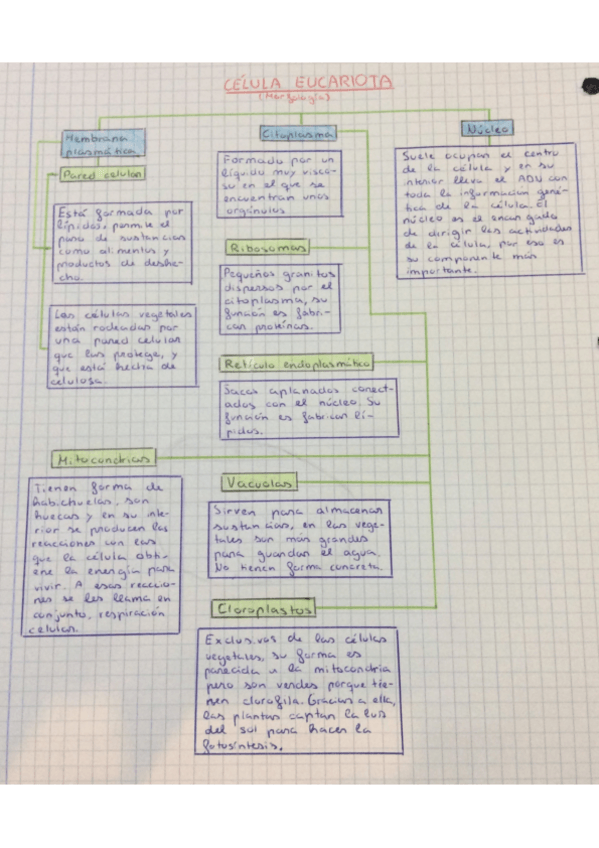 CÉLULA EUCARIOTA
(Morfología)
Membrana
plasmática
Pared celular
Está formada por
lípidos, permite el
paso de sustancias
como alimentos y
productos de deshe-
cho.
Las células vegetales
están rodeadas por
una pared celular
que las protege, y
que está hecha de
celulosa.
Citoplasma
Formado por un
líquido muy visco-
so en el que se
encuentran unos
orgánulos.
Ribosomas
Pequeños granitos
dispersos por el
citoplasma, su
función es fabri-
car proteínas.
Retículo endoplasmático
Sacos aplanados conect-
ados con el núcleo. Su
función es fabricar lí-
pidos.
Núcleo
Suele ocupar el centro
de la célula y en su
interior lleva el ADN con
toda la información gené-
tica de la célula. El
núcleo es el encargado
de dirigir las actividades
de la célula, por eso es
su componente más
importante.
Mitocondrias
Tienen forma de
habichuelas, son
huecas y en su inte-
rior se producen las
reacciones con las
que la célula obti-
ene la energía para
vivir. A esas reaccio-
nes se les llama en
conjunto, respiración
celular.
Vacuolas
Sirven para almacenar
sustancias, en las vege-
tales son más grandes
para guardar el agua.
No tienen forma concreta.
Cloroplastos
Exclusivos de las células
vegetales, su forma es
parecida a la mitocondria
pero son verdes porque tie-
nen clorofila. Gracias a ella,
las plantas captan la luz
del sol para hacer la
fotosíntesis.